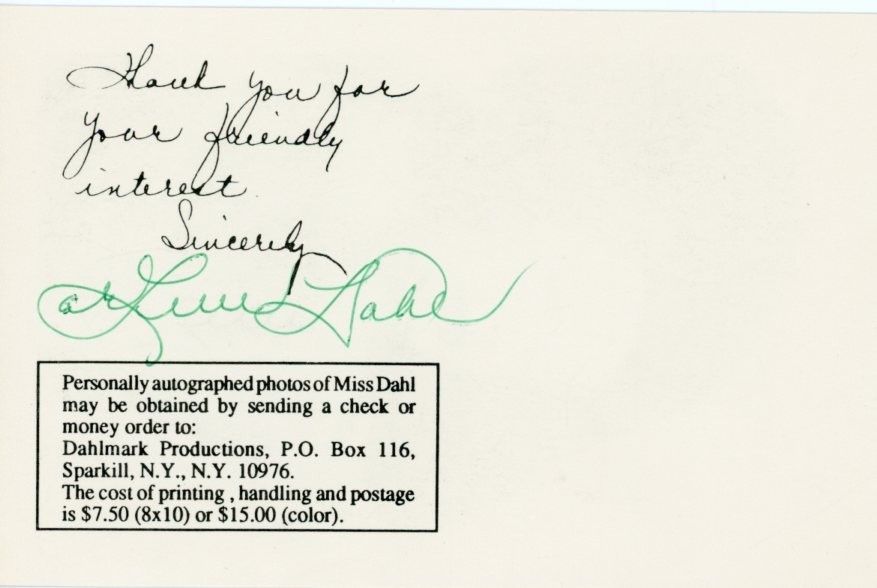 Thank you for
your friendly
interest.
Sincerely
Arlene Dahl
Personally autographed photos of Miss Dahl
may be obtained by sending a check or
money order to:
Dahlmark Productions, P.O. Box 116,
Sparkill, N.Y., N.Y. 10976.
The cost of printing , handling and postage
is $7.50 (8x10) or $15.00 (color).